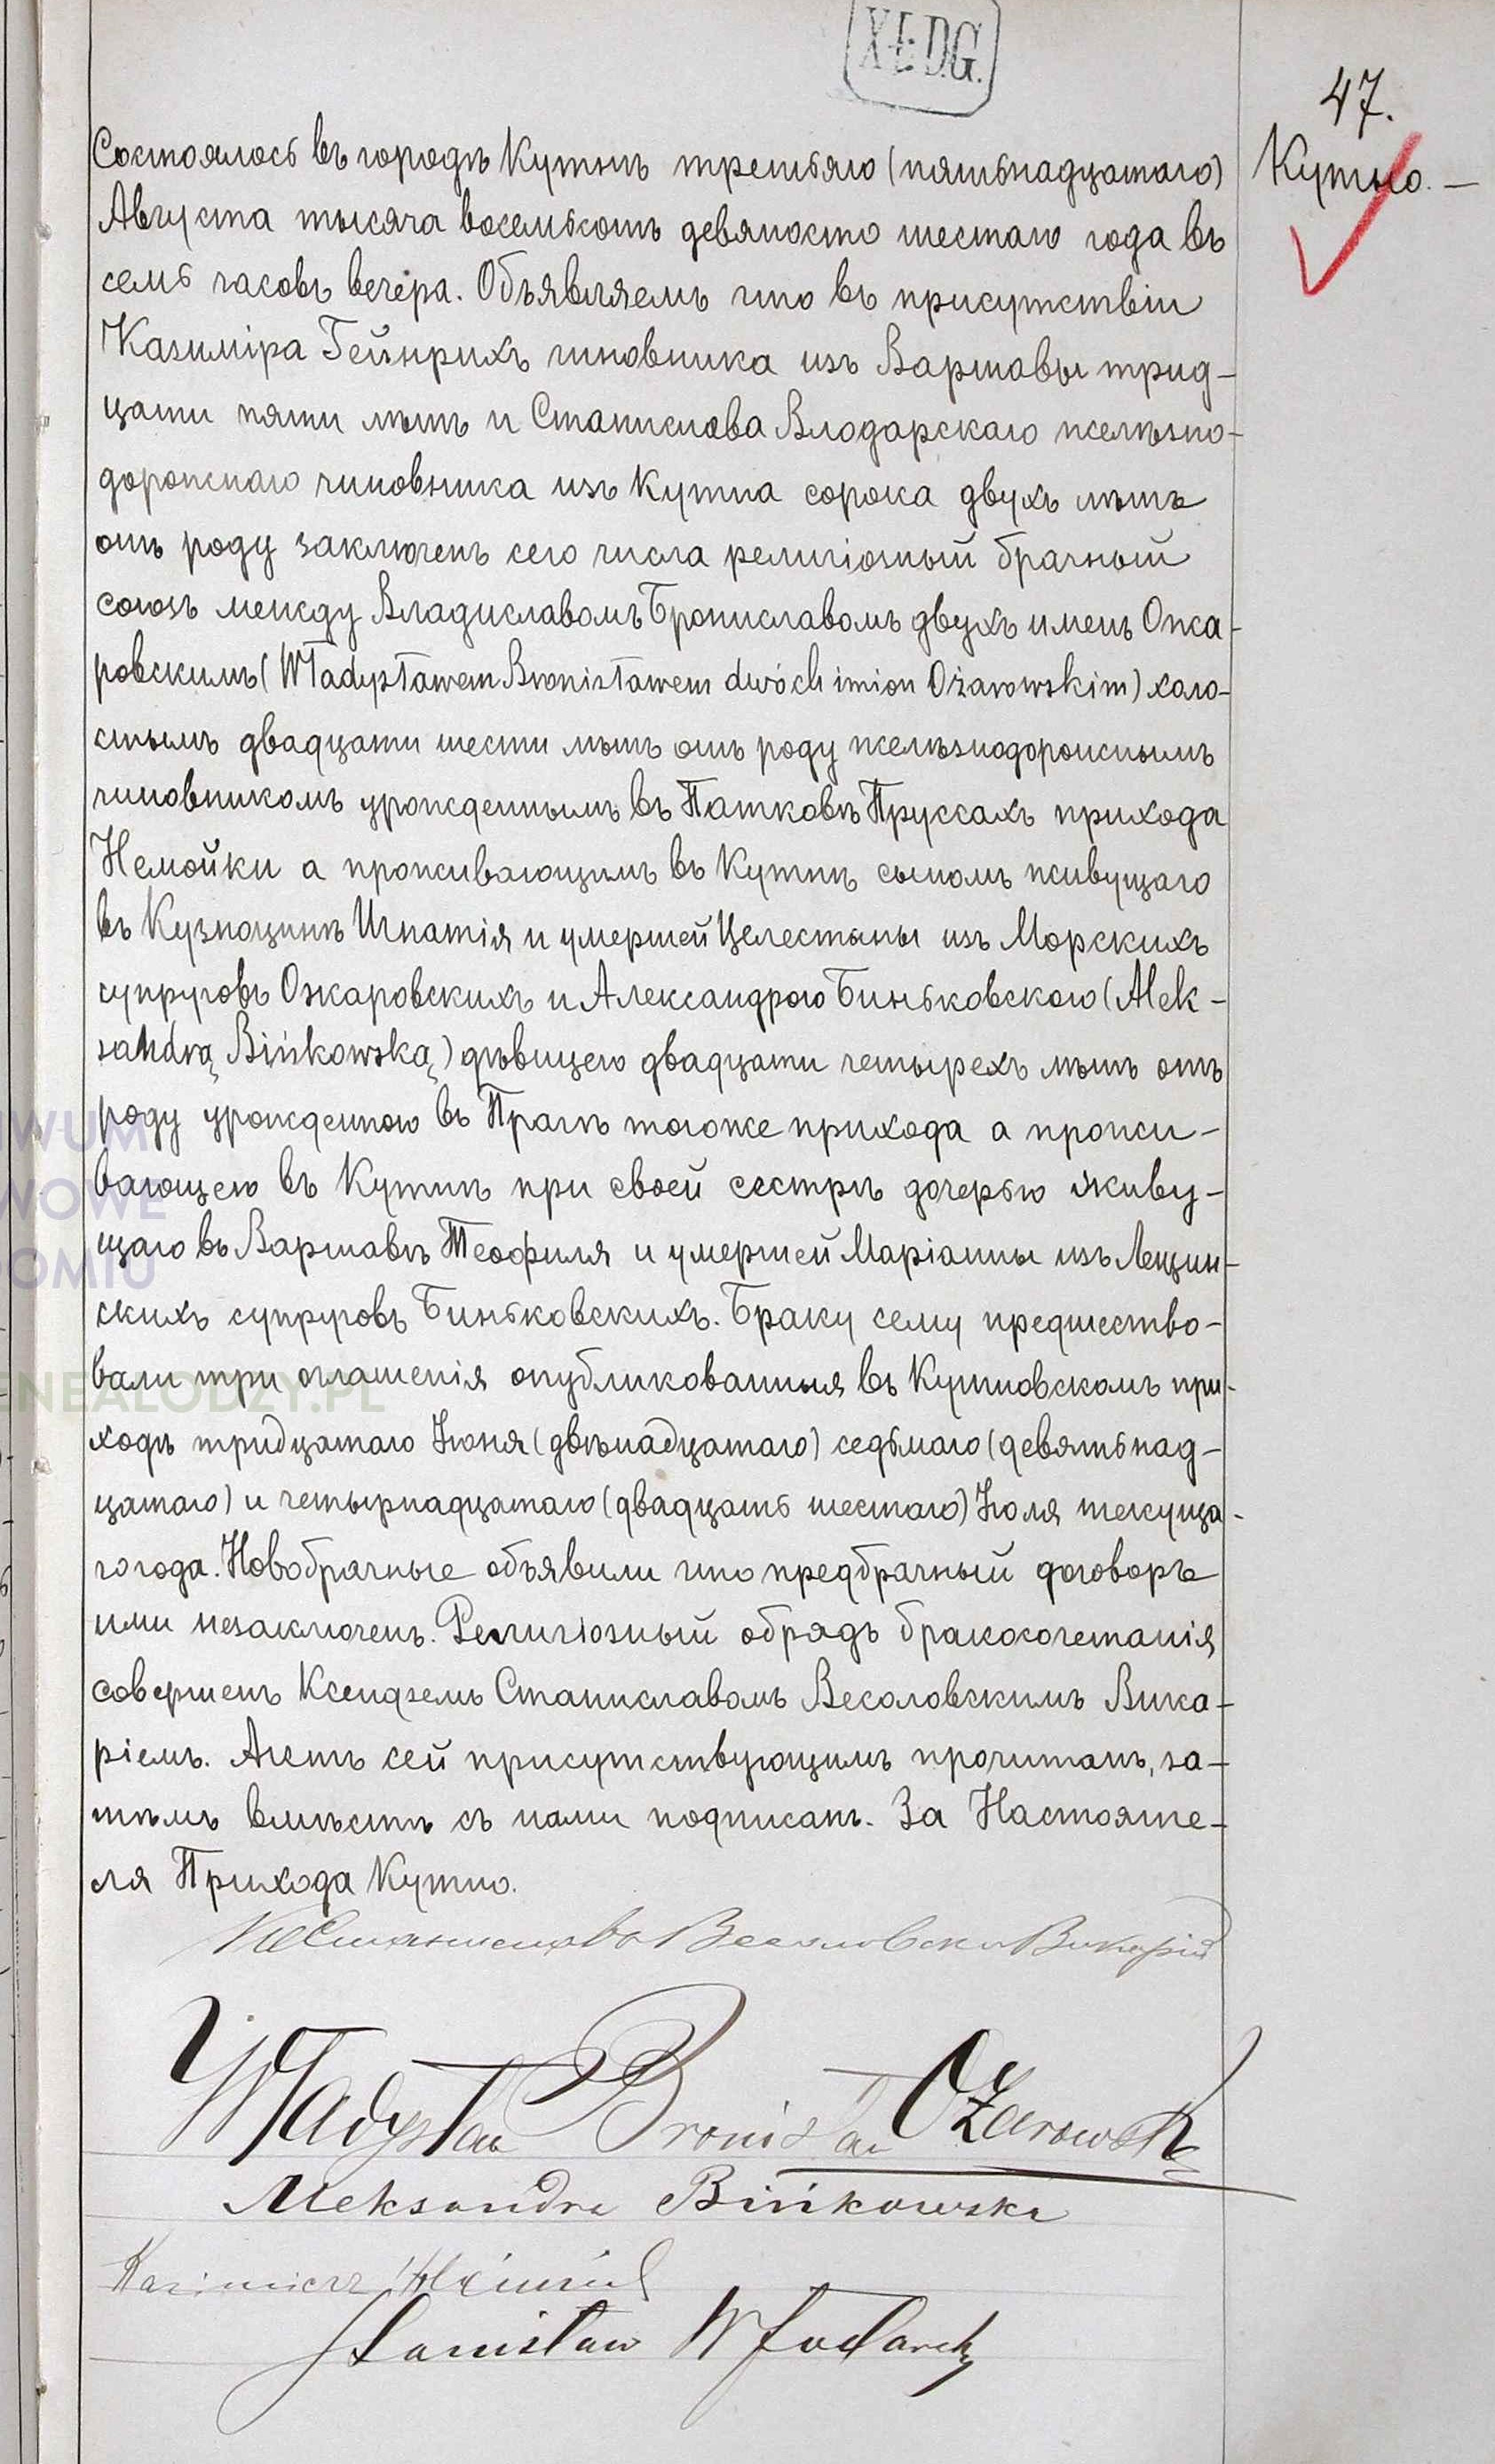 X.Ł.D.G.
47.
Кутно. —
Состоялось въ городѣ Кутнѣ третьяго (пятьнадцатаго)
Августа тысяча восемьсотъ девяносто шестаго года въ
семь часовъ вечера. Объявляемъ что въ присутствіи
Казиміра Гейнрихъ чиновника изъ Варшавы трид-
цати пяти лѣтъ и Станислава Влодарскаго желѣзно-
дорожнаго чиновника изъ Кутна сорока двухъ лѣтъ
отъ роду заключенъ сего числа религіозный брачный
союзъ между Владиславомъ Брониславомъ двухъ именъ Ожа-
ровскимъ (Władysławem Bronisławem dwóch imion Ożarowskim) холо-
стымъ двадцати шести лѣтъ отъ роду желѣзнодорожнымъ
чиновникомъ урожденнымъ въ Патковѣ Пруссахъ прихода
Немойки а проживающимъ въ Кутнѣ сыномъ живущаго
въ Кузноцинѣ Игнатія и умершей Целестыны изъ Морскихъ
супруговъ Ожаровскихъ и Александрою Биньковскою (Alek-
sandrą Bińkowską) дѣвицею двадцати четырехъ лѣтъ отъ
роду урожденною въ Прагѣ тогоже прихода а прожи-
вающею въ Кутнѣ при своей сестрѣ дочерью живу-
щаго въ Варшавѣ Теофиля и умершей Маріанны изъ Лещин-
скихъ супруговъ Биньковскихъ. Браку сему предшество-
вали три оглашенія опубликованныя въ Кутновскомъ при-
ходѣ тридцатаго Іюня (двѣнадцатаго) седьмаго (девятьнад-
цатаго) и четырнадцатаго (двадцать шестаго) Іюля текуща-
го года. Новобрачные объявили что предбрачный договоръ
ими незаключенъ. Религіозный обрядъ бракосочетанія
совершенъ Ксендземъ Станиславомъ Весоловскимъ Вика-
ріемъ. Актъ сей присутствующимъ прочитанъ, за-
тѣмъ вмѣстѣ съ нами подписанъ. За Настояте-
ля Прихода Кутно.
Кс Станиславъ Весоловски Викарій
Władysław Bronisław Ożarowski
Aleksandra Bińkowska
Kazimierz Heinrich
Stanisław Włodarski
WUM
WOWE
OMIU
ENEALODZY.PL